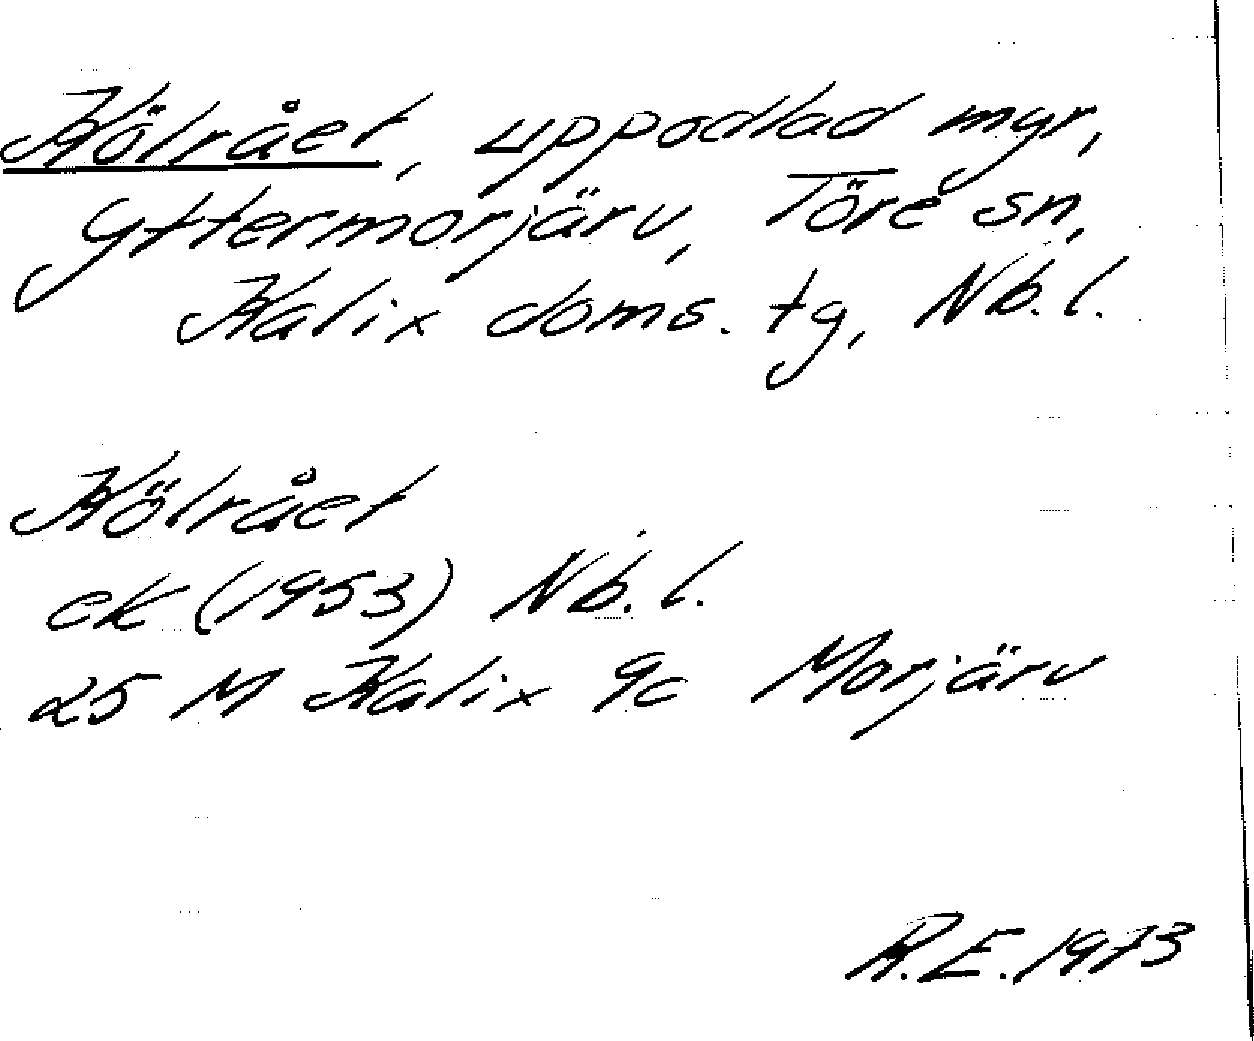 Kölrået, uppodlad mgr,
Yttermorjärv, Töre sn,
Kalix doms. tg, Nb. l.
Kölrået
ek (1953) Nb. l.
25 M Kalix 9c Morjärv
R.E. 1973